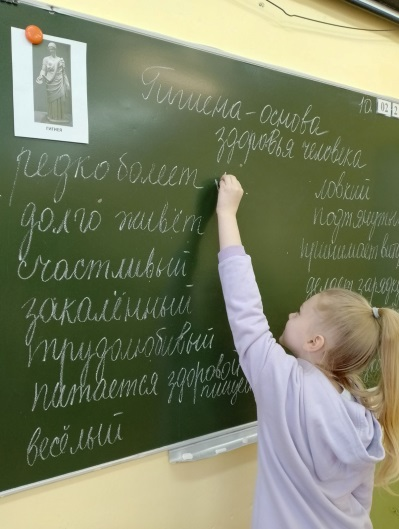 10 02 2
Гигиена - основа
здоровья человека
редко болеет
долго живёт
счастливый
закалённый
трудолюбивый
питается здоровой
пищей
весёлый
ловкий
подтянуты
принимает
делает зарядк